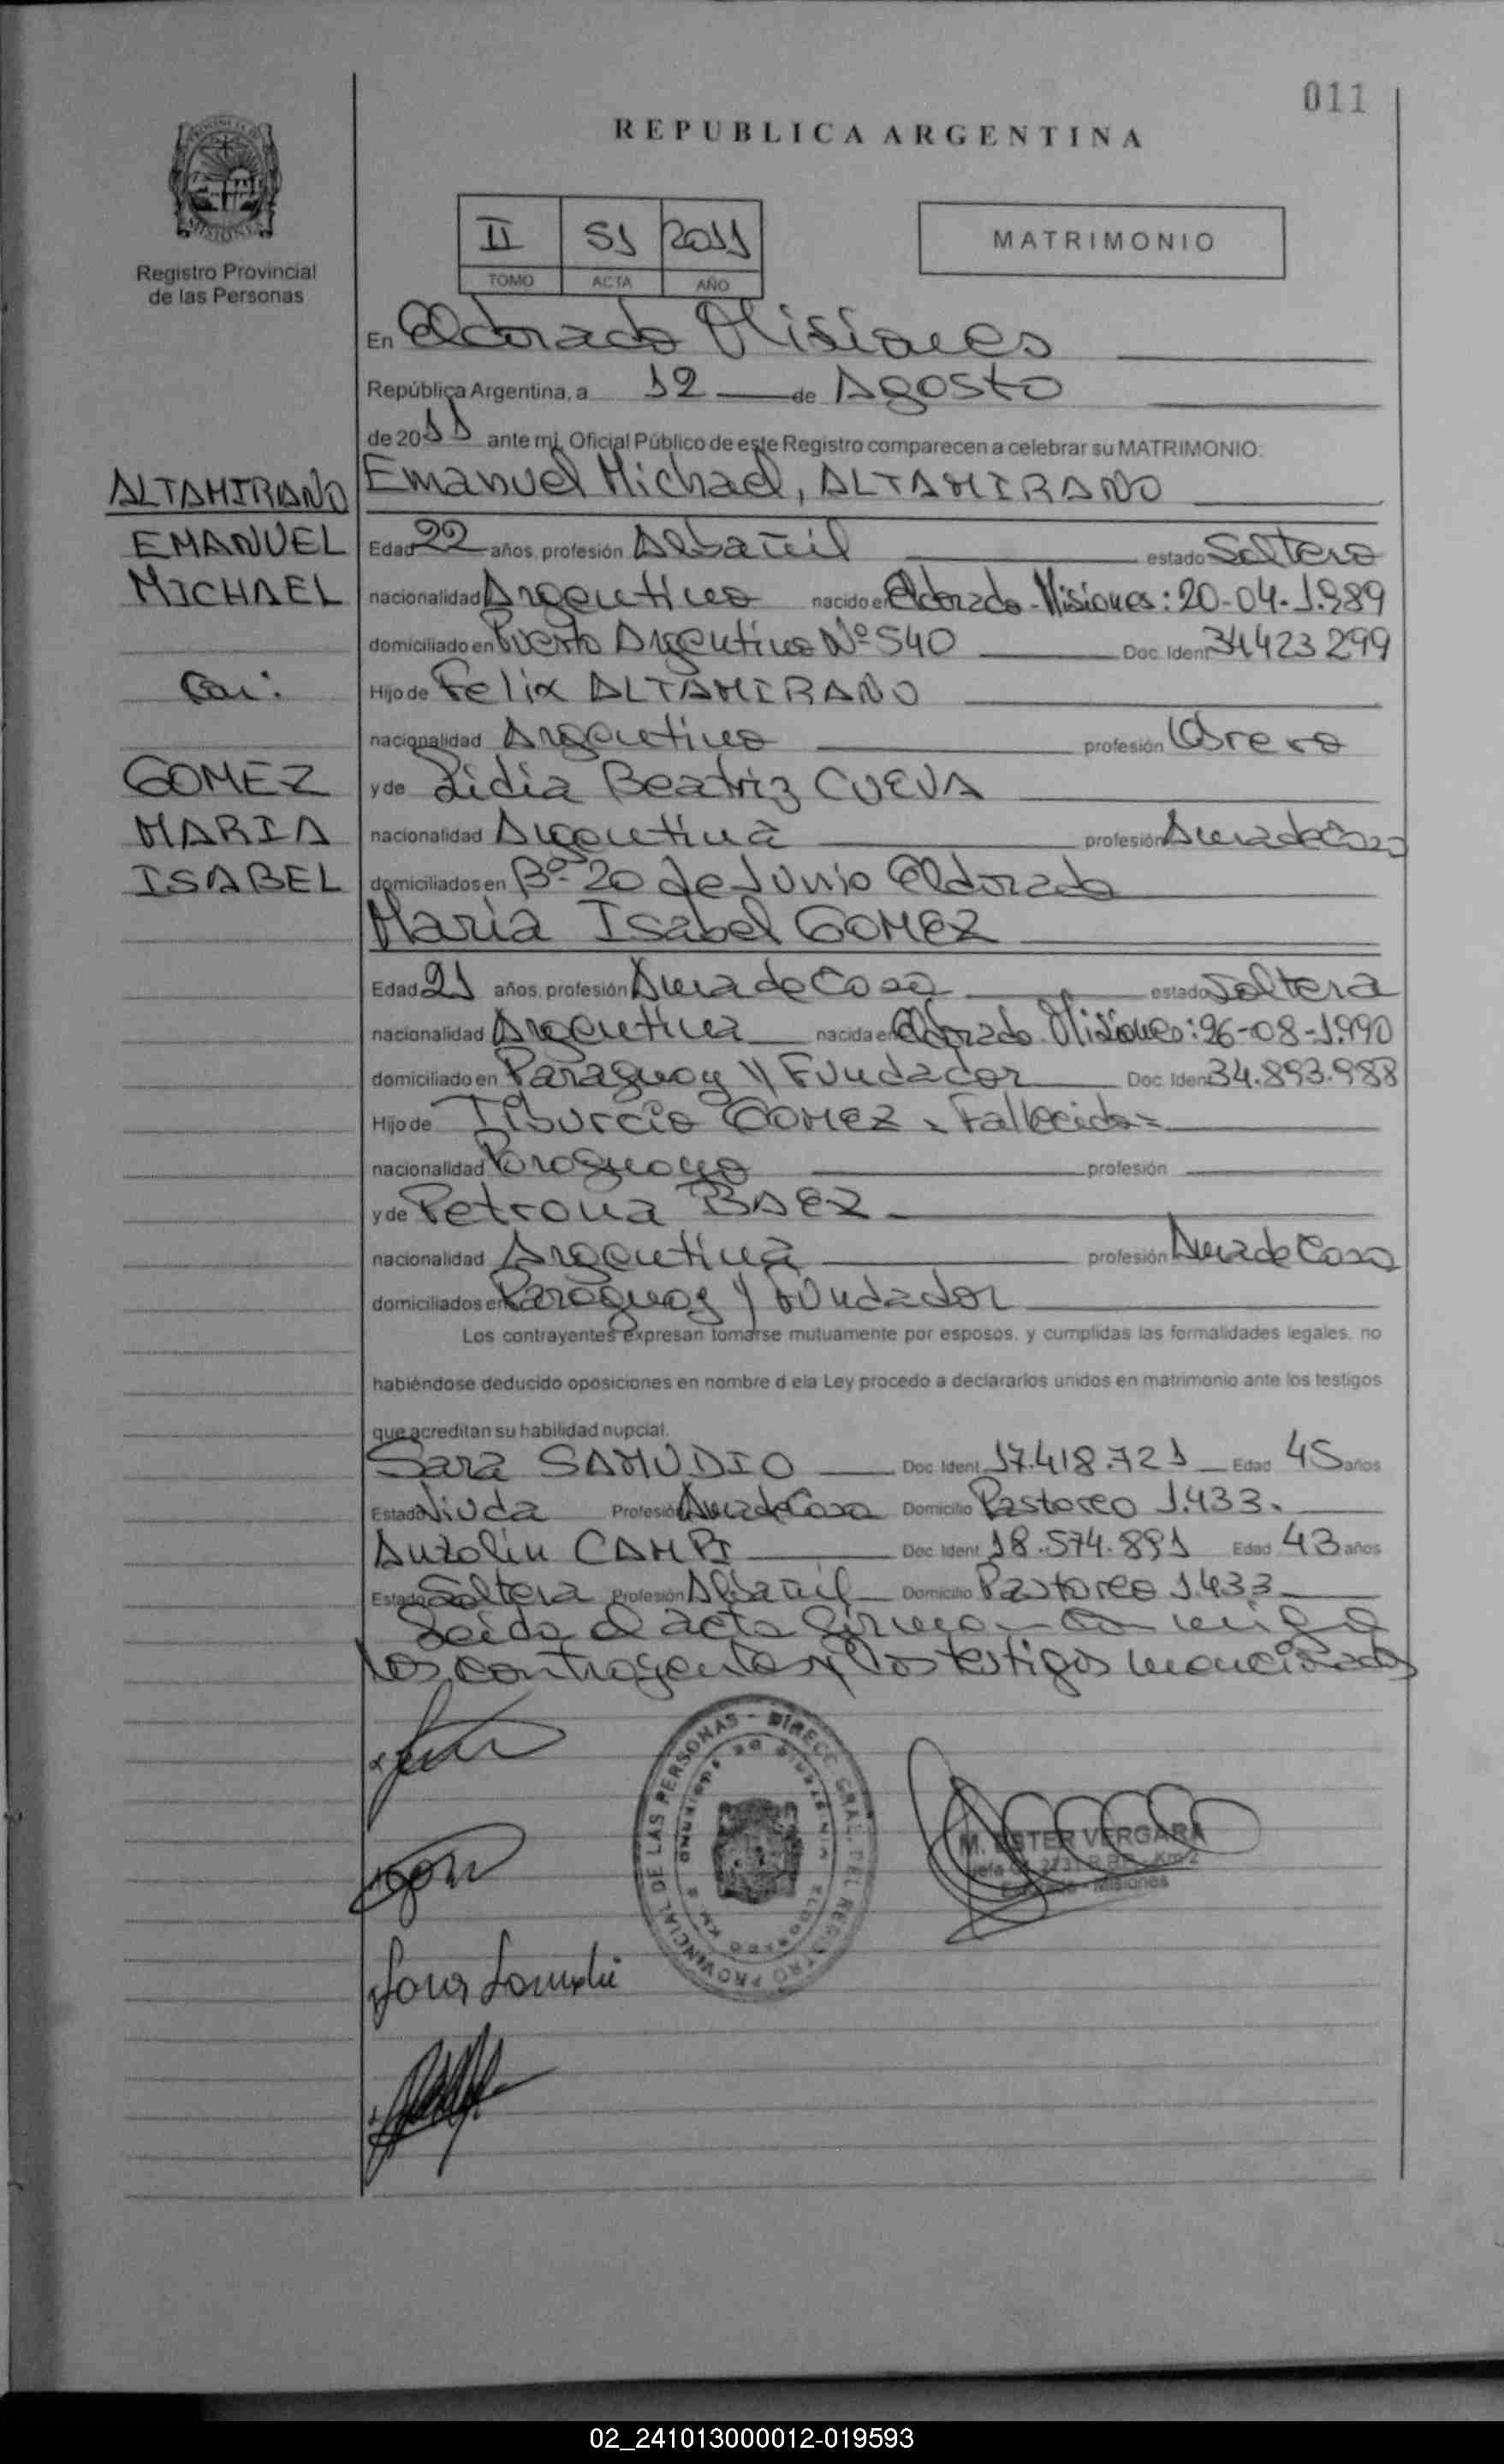 011
REPUBLICA ARGENTINA
II 51 2011
MATRIMONIO
TOMO ACTA AÑO
Registro Provincial
de las Personas
En Eldorado Misiones
República Argentina, a 12 de Agosto
de 2011 ante mi, Oficial Público de este Registro comparecen a celebrar su MATRIMONIO:
ALTAMIRANO
EMANUEL
MICHAEL
Con:
GOMEZ
MARIA
ISABEL
Emanuel Michael, ALTAMIRANO
Edad 22 años, profesión Albañil estado Soltero
nacionalidad Argentino nacido en Eldorado - Misiones: 20-04-1.989
domiciliado en Puerto Argentino Nº 540 Doc. Ident 34423299
Hijo de Felix ALTAMIRANO
nacionalidad Argentino profesión Obrero
y de Lidia Beatriz CUEVA
nacionalidad Argentina profesión Ama de Casa
domiciliados en Bº 20 de Junio Eldorado
Maria Isabel GOMEZ
Edad 21 años, profesión Ama de Casa estado Soltera
nacionalidad Argentina nacida en Eldorado Misiones: 26-08-1.990
domiciliado en Paraguay y Fundador Doc. Ident 34.893.988
Hijo de Tiburcio GOMEZ - Fallecido-
nacionalidad Paraguayo profesión
y de Petrona BAEZ
nacionalidad Argentina profesión Ama de Casa
domiciliados en Paraguay y Fundador
Los contrayentes expresan tomarse mutuamente por esposos, y cumplidas las formalidades legales, no
habiéndose deducido oposiciones en nombre d ela Ley procedo a declararlos unidos en matrimonio ante los testigos
que acreditan su habilidad nupcial.
Sara SAMUDIO Doc. Ident. 17.418.721 Edad 45 años
Estado Viuda Profesión Ama de Casa Domicilio Pastoreo 1.433.
Anzolin Doc. Ident. 18.574.891 Edad 43 años
Estado Soltera Profesión Albañil Domicilio Pastoreo 1.433
Leida el acta firman conmigo
los contrayentes y los testigos mencionados
DIRECC. GRAL. DEL REGISTRO PROVINCIAL DE LAS PERSONAS -
ELDORADO KM 2
M. ESTER VERGARA
Jefa Of. 2731 R.P.P. - Km 2
Eldorado - Misiones
Sara Samudio
02_241013000012-019593